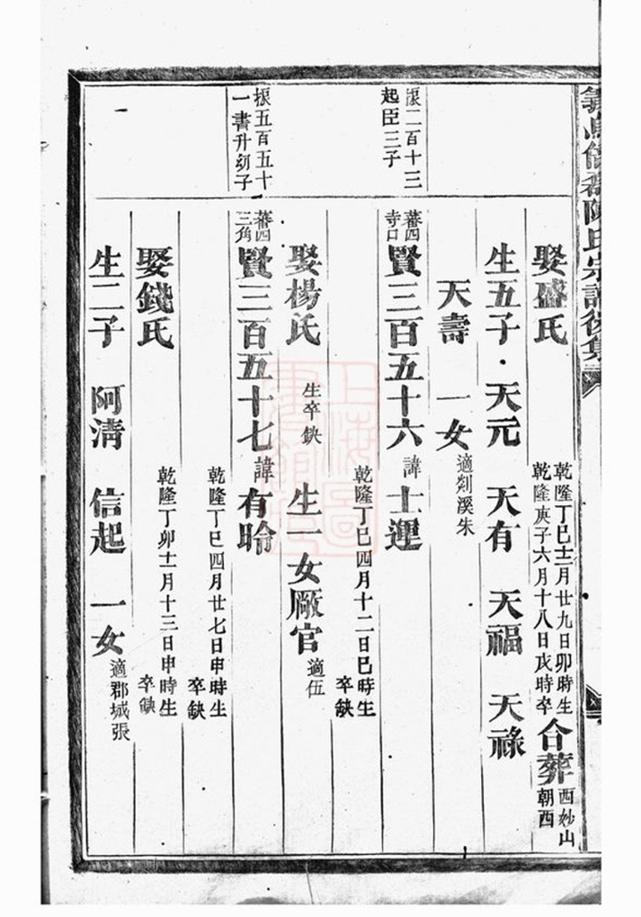 陳氏宗譜後集
娶盛氏 乾隆丁巳十二月廿九日卯時生 乾隆庚子六月十八日戌時卒 合葬 西妙山朝西
生五子 天元 天有 天福 天祿
天壽 一女 適剡溪朱
振二百十三起臣三子
蕃四寺口 賢三百五十六 諱 士運 乾隆丁巳四月十二日巳時生 卒缺
娶楊氏 生卒缺 生一女厰官 適伍
振五百五十一書升幼子
蕃四三角 賢三百五十七 諱 有聆 乾隆丁巳四月廿七日申時生 卒缺
娶錢氏 乾隆丁卯十一月十三日申時生 卒缺
生二子 阿清 信起 一女 適郡城張